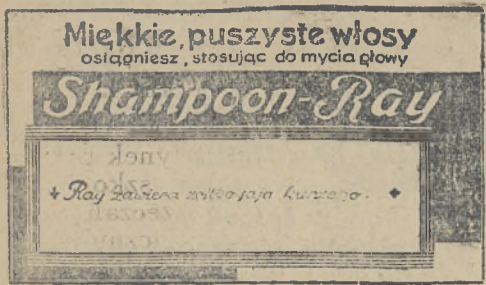 Miękkie, puszyste włosy
osiągniesz, stosując do mycia głowy
Shampoon-Ray
Ray zawiera żółtko jaja kurzego.